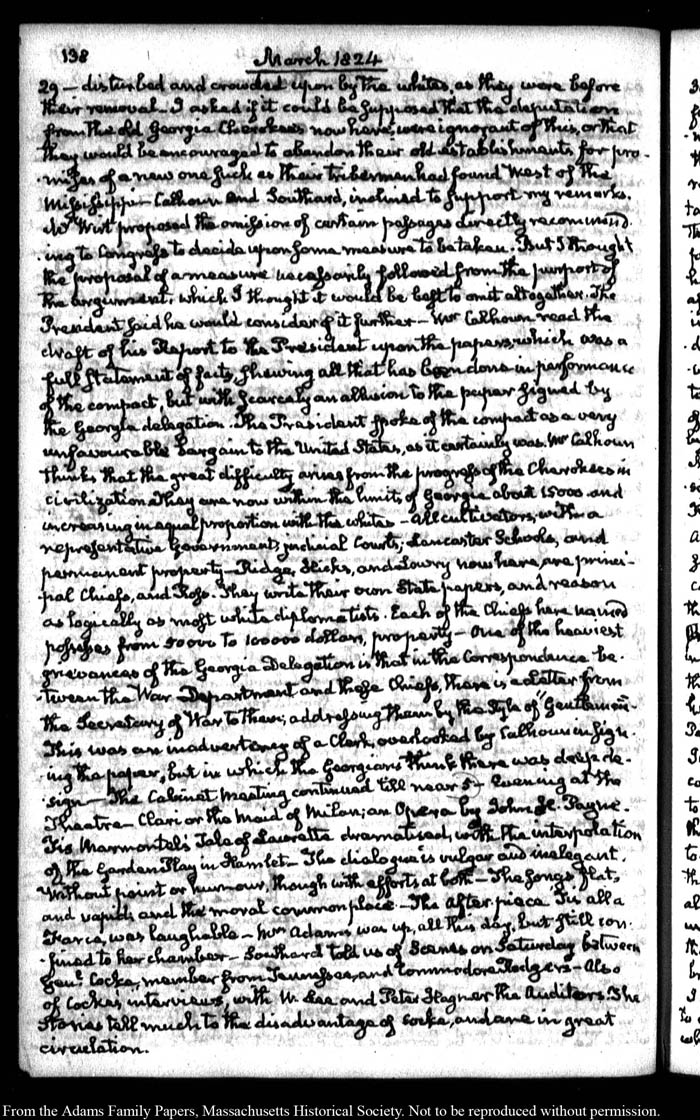 138
March 1824
29 — disturbed and crowded upon by the whites, as they were before
their removal. I asked if it could be supposed that the deputation
from the old Georgia Cherokees now here, were ignorant of this, or that
they would be encouraged to abandon their old establishments for pro-
-mises of a new one such as their tribesmen had found West of the
Mississippi — Calhoun and Southard, inclined to support my remarks.
Mr Wirt proposed the omission of certain passages directly recommend
-ing to Congress to decide upon some measure to be taken. But I thought
the proposal of a measure necessarily followed from the purport of
the argument; which I thought it would be best to omit altogether. The
President said he would consider of it further — Mr Calhoun read the
draft of his Report to the President upon the papers, which was a
full statement of facts, shewing all that has been done in performance
of the compact, but with scarcely an allusion to the paper signed by
the Georgia delegation. The President spoke of the compact as a very
unfavourable bargain to the United States, as it certainly was. Mr Calhoun
thinks that the great difficulty arises from the progress of the Cherokees in
civilization. They are now within the limits of Georgia about 15000 and
increasing in equal proportion with the whites — All cultivators, with a
representative Government, judicial Courts, Lancaster Schools, and
permanent property — Ridge, Hicks, and Lowry now here, are princi-
-pal Chiefs, and Ross. They write their own State papers, and reason
as logically as most white diplomatists. Each of the Chiefs here named
possesses from 50000 to 100000 dollars, property — One of the heaviest
grievances of the Georgia Delegation is that in the Correspondence be-
-tween the War Department and these Chiefs, there is a Letter from
the Secretary of War to them; addressing them by the style of "Gentlemen"
This was an inadvertency of a Clerk, overlooked by Calhoun in sign-
-ing the paper, but in which the Georgians think there was deep de-
-sign — The Cabinet Meeting continued till near 5 — Evening at the
Theatre — Clari or the Maid of Milan; an Opera by John H. Payne.
Tis Marmontel's Tale of Lauretta dramatised, with the interpolation
of the Garden Play in Hamlet — The dialogue is vulgar and inelegant,
without point or humour, though with efforts at both — The Songs, flat,
and vapid; and the moral common place — The after piece Tis all a
Farce, was laughable — Mrs Adams was up, all this day, but still con-
-fined to her chamber — Southard told us of Scenes on Saturday between
Genl. Cocke, member from Tennessee, and Commodore Rodgers — Also
of Cocke's interviews, with W. Lee and Peter Hagner the Auditors. The
stories tell much to the disadvantage of Cocke, and are in great
circulation.
From the Adams Family Papers, Massachusetts Historical Society. Not to be reproduced without permission.